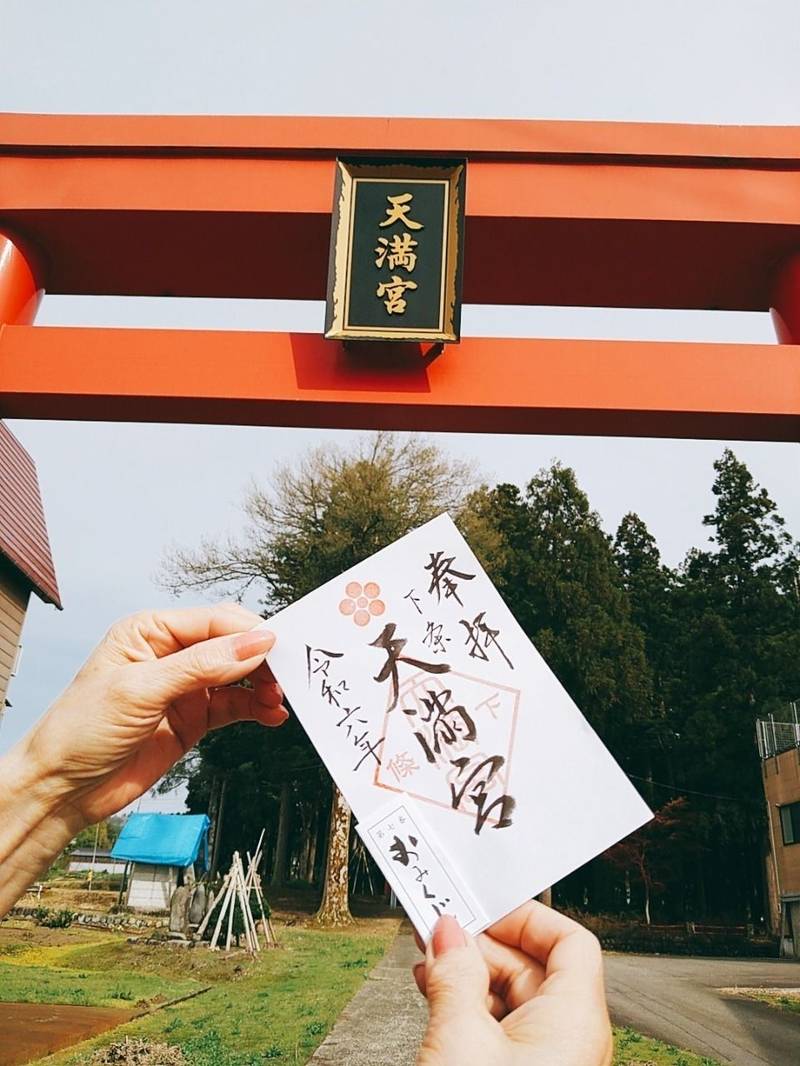 天満宮
奉拝
下条
天満宮
令和六年
下
條
おみくじ